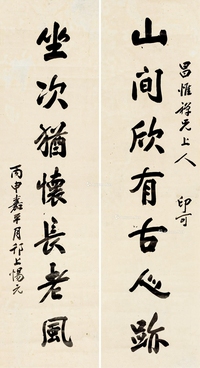 昌惟祥兄上人 印可
山間欣有古人跡
坐次猶懷長老風
丙申嘉平月邗上惕元